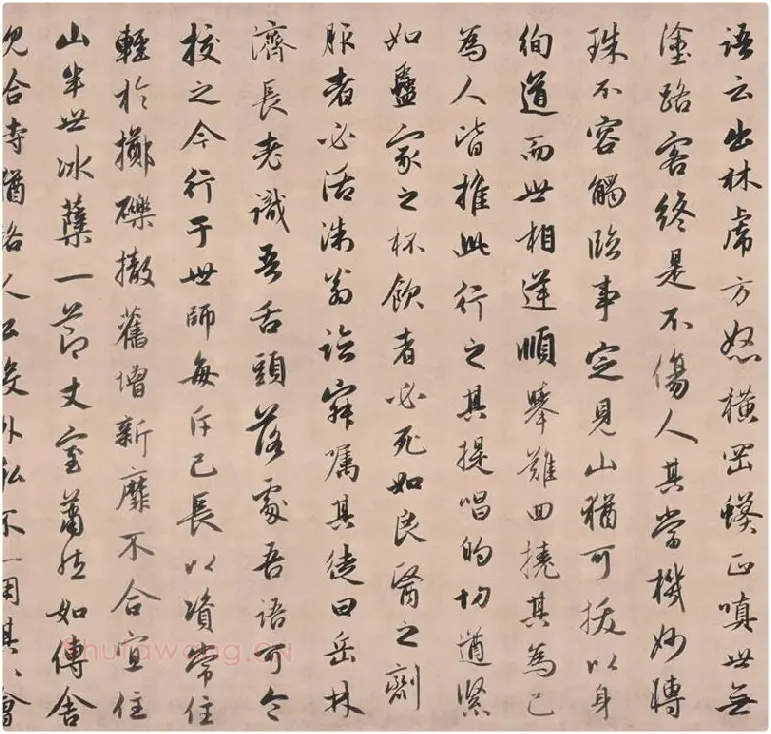 語云出林虎方怒橫岡蟒正嗔世無
塗路客終是不傷人其當機妙轉
珠不容觸臨事定見山猶可拔以身
徇道而世相逆順舉難回撓其為己
為人皆推此行之其提唱的切遒緊
如蠱家之杯飲者必死如良醫之劑
服者必活翁辭囑其徒曰岳林
濟長老識吾舌頭落處吾語可令
校之今行于世師每斥己長以資常住
輕於擲礫撤舊增新靡不合宜住
山半世冰蘖一節丈室蕭然如傳舍
合寺猶諸人公外弘不一用其會
Shufawang.CN